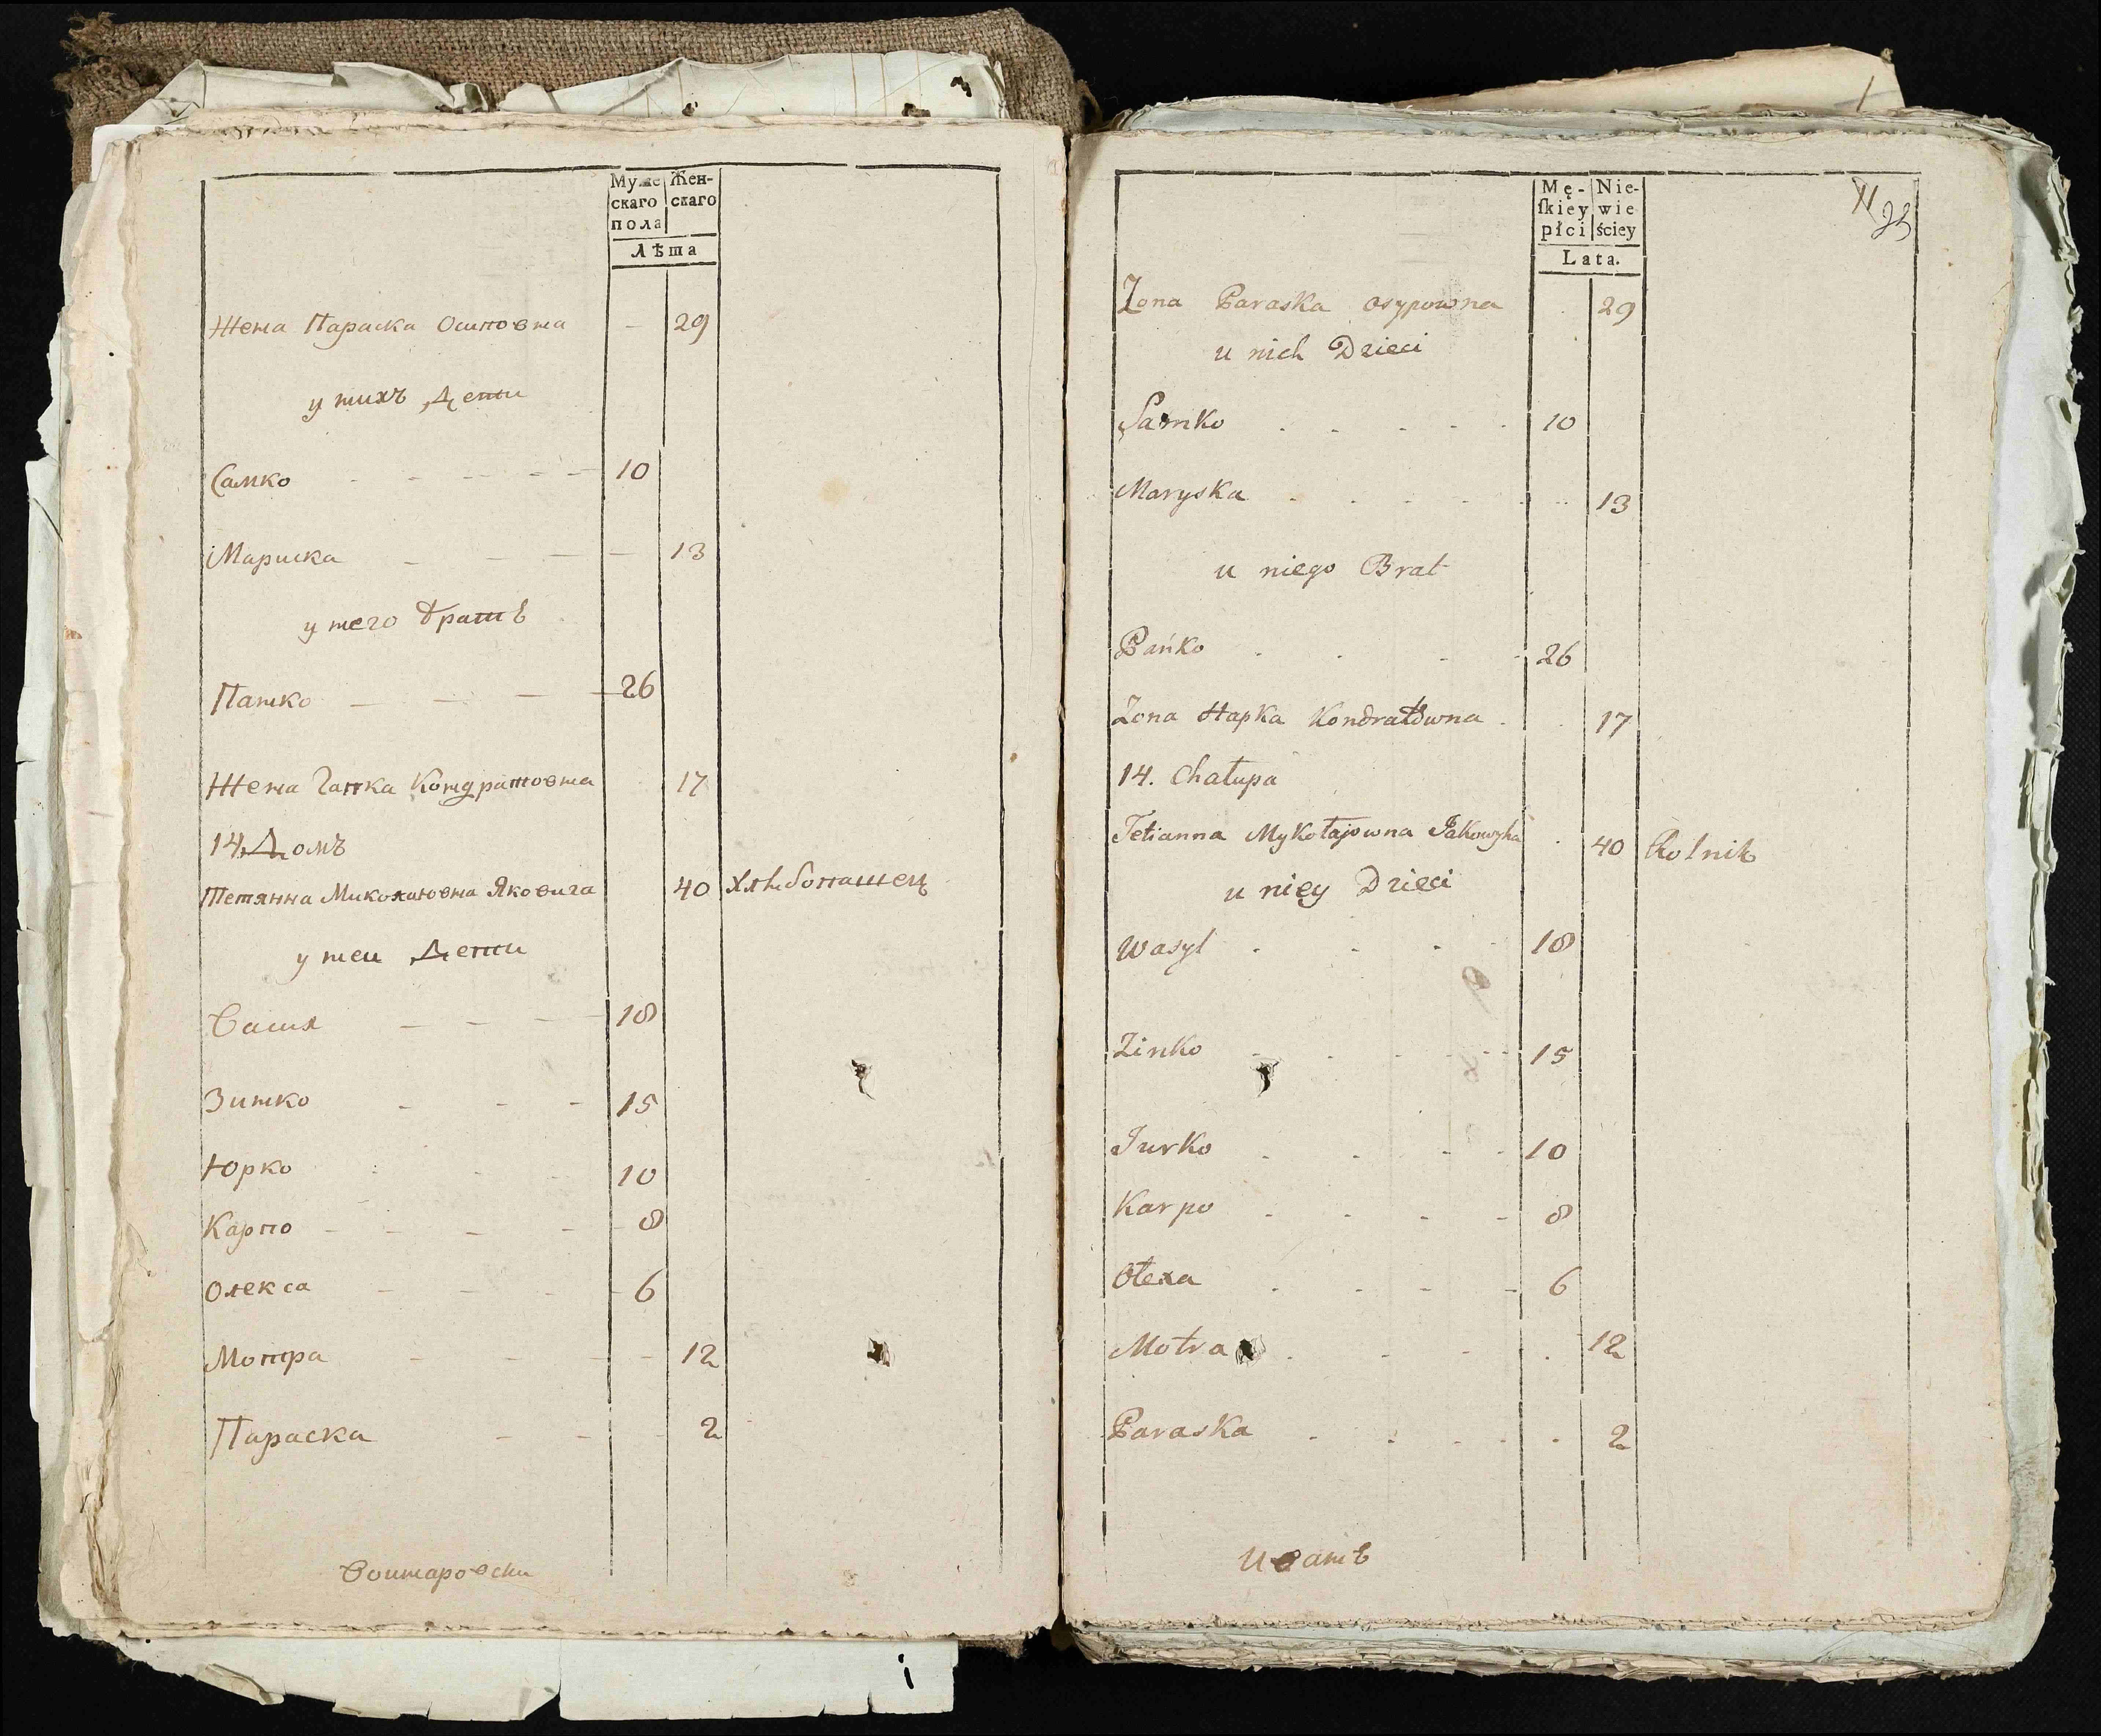 Муже Жен-
скаго скаго
пола
Лѣта
Жена Параска Осиповна - 29
у нихъ Дети
Самко 10
Мариска 13
у него братъ
Панко 26
Жена Гапка Кондратовна 17
14 Домъ
Тетянна Миколаювна Яковиха 40 Хлѣбопашец
у неи Дети
Васил 18
Зинко 15
Юрко 10
Карпо 8
Олекса 6
Мотра 12
Параска 2
Mę- Nie-
ſkiey wie
płci ściey
Lata.
Zona Paraska Osypowna 29
u nich Dzieci
Samko 10
Maryska 13
u niego Brat
Pańko 26
Zona Hapka Kondratowna 17
14. Chałupa
Tetianna Mykołajowna Jakowycha 40 Rolnik
u niey Dzieci
Wasyl 18
Zinko 15
Jurko 10
Karpo 8
Ołexa 6
Motra 12
Paraska 2
Иванъ